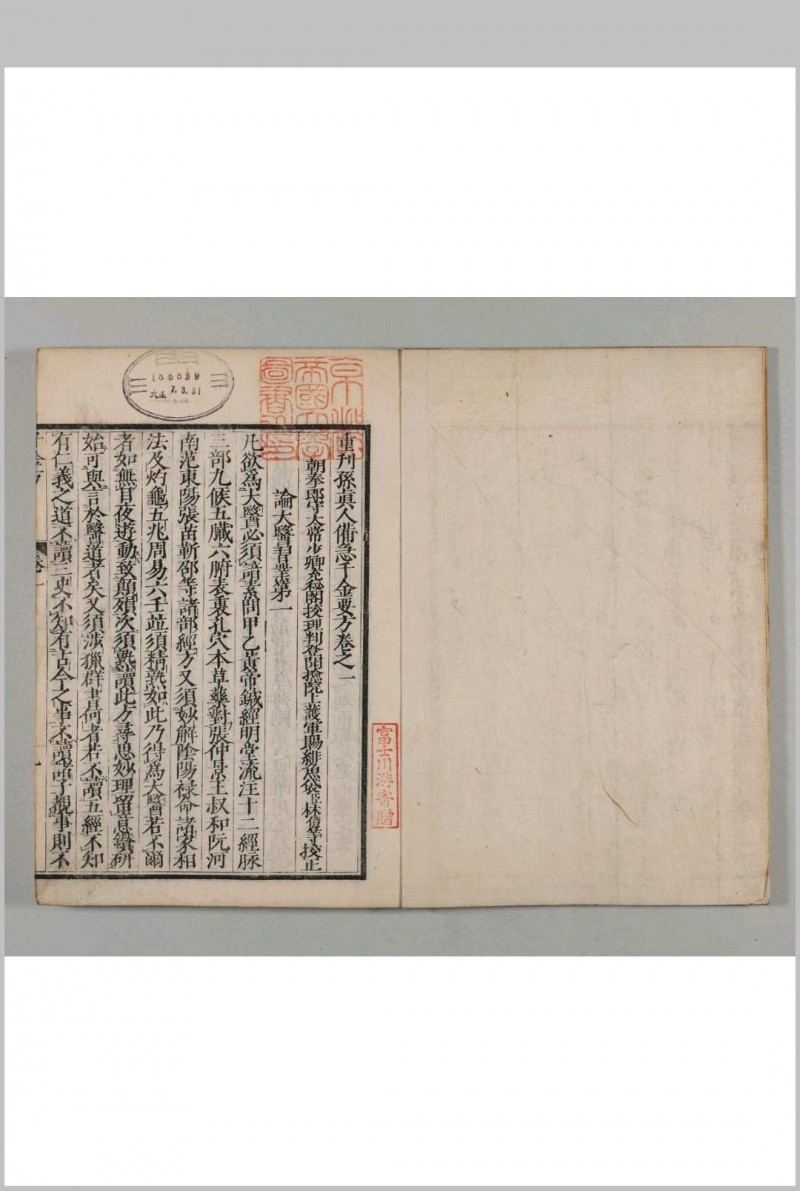 重刊孫真人備急千金要方卷之一
朝奉郎守太常少卿充秘閣校理判登聞撿院上護軍賜緋魚袋臣林億等校正
論大醫習業第一
凡欲爲大醫必須諳素問甲乙黃帝鍼經明堂流注十二經脉
三部九候五臟六腑表裏孔穴本草藥對張仲景王叔和阮河
南范東陽張苗靳邵等諸部經方又須妙解陰陽祿命諸家相
法及灼龜五兆周易六壬並須精熟如此乃得爲大醫若不爾
者如無目夜遊動致顛殞次須熟讀此方尋思妙理留意鑽研
始可與言於醫道者矣又須涉獵群書何者若不讀五經不知
有仁義之道不讀三史不知有古今之事不讀諸子覩事則不
千金方 卷一
京都帝國大學圖書之印
富士川游寄贈
100089
大正 7.3.31